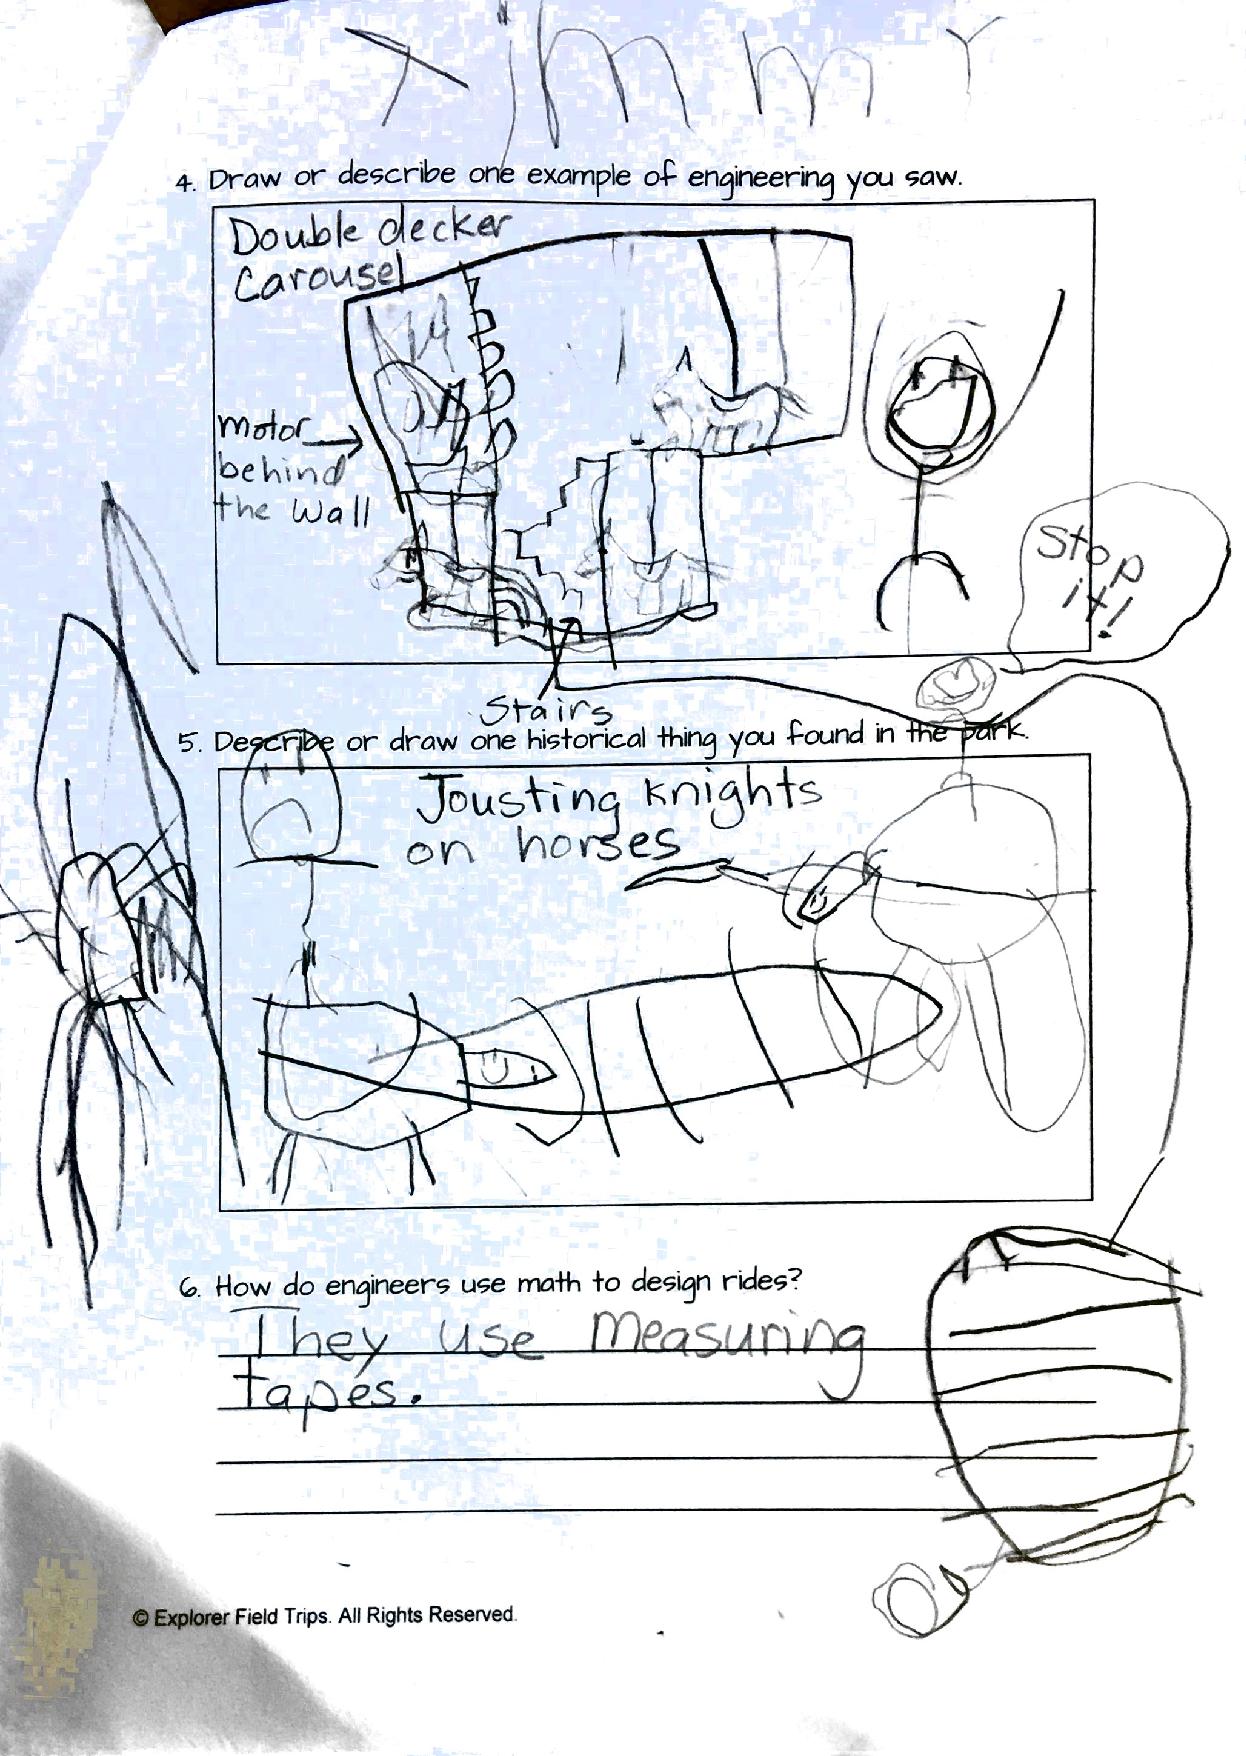 Jimmy
4. Draw or describe one example of engineering you saw.
Double decker
Carousel
motor
behind
the wall
Stop
it!
Stairs
5. Describe or draw one historical thing you found in the park.
Jousting knights
on horses
6. How do engineers use math to design rides?
They use measuring
tapes.
© Explorer Field Trips. All Rights Reserved.